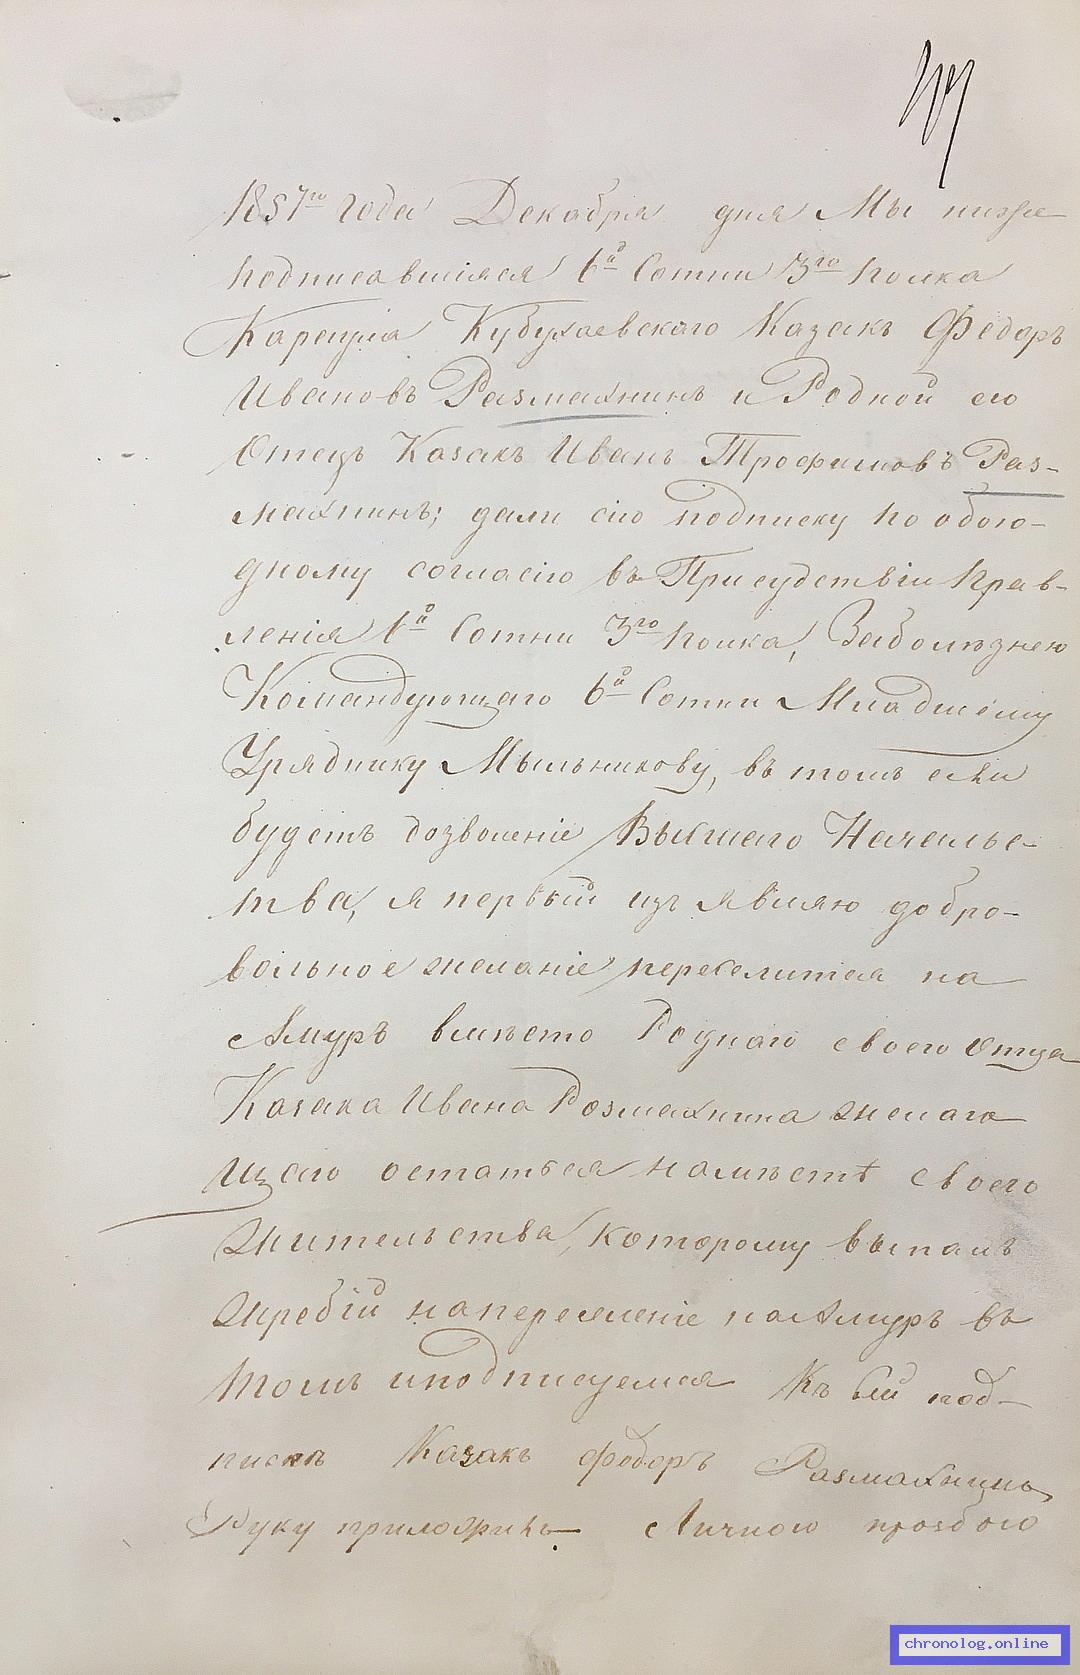 1857го года Декабря дня Мы ниже
подписавшiяся 6й Сотни 3го полка
Караула Кубухаевскаго Казакъ Федоръ
Ивановъ Размахнинъ и Родной его
Отецъ Казакъ Иванъ Трофимовъ Раз-
махнинъ; дали сiю подписку по обою-
дному согласiю въ Присудствiи Прав-
ленiя 6й Сотни 3го полка, За болѣзнею
Командующаго 6й Сотни Младшему
Уряднику Мыльникову, въ томъ если
будетъ дозволенiе Высшаго Начальс-
тва, я первый изъявляю добро-
вольное желанiе переселится на
Амуръ вмѣсто Роднаго своего Отца
Казака Ивана Розмахнина желаю
щаго остаться намѣстѣ своего
жительства, которому выпалъ
жребiй напереселенiе наАмуръ въ
томъ иподписуемся Къ сей под-
пискѣ Казакъ Фодоръ Размахнинъ
Руку приложилъ Личною прозбою
chronolog.online